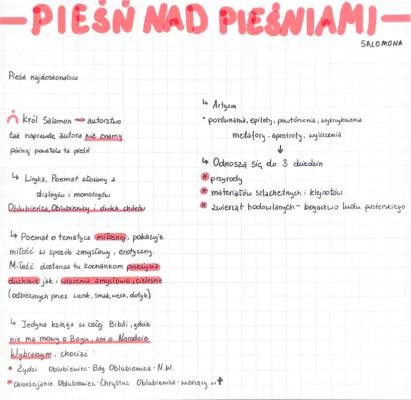 PIEŚŃ NAD PIEŚNIAMI
SALOMONA
Pieśń najdoskonalsza
król Salomon → autorstwo
tak naprawdę autora nie znamy
później powstała ta pieśń
↳ Liryka, Poemat złożony z
dialogów i monologów
Oblubieńca, Oblubienicy i dwóch chórów
↳ Poemat o tematyce miłosnej, pokazuje
miłość w sposób zmysłowy, erotyczny.
Miłość dostarcza tu kochankom przeżycia
duchowe jak i wrażenia zmysłowe, cielesne
(odbieranych przez wzrok, smak, węch, dotyk)
↳ Jedyna księga w całej Biblii, gdzie
nie ma mowy o Bogu, ani o Narodzie
Wybranym, chociaż:
• Żydzi Oblubieniec-Bóg Oblubienica-N.W.
• chrześcijanie Oblubieniec-Chrystus Oblubienica-wierzący w †
↳ Artyzm
• porównania, epitety, powtórzenia, wykrzyknienia
metafory, apostrofy, wyliczenia
↓
↳ Odnoszą się do 3 dziedzin
przyrody
materiałów szlachetnych i klejnotów
zwierząt hodowlanych - bogactwo ludu pasterskiego